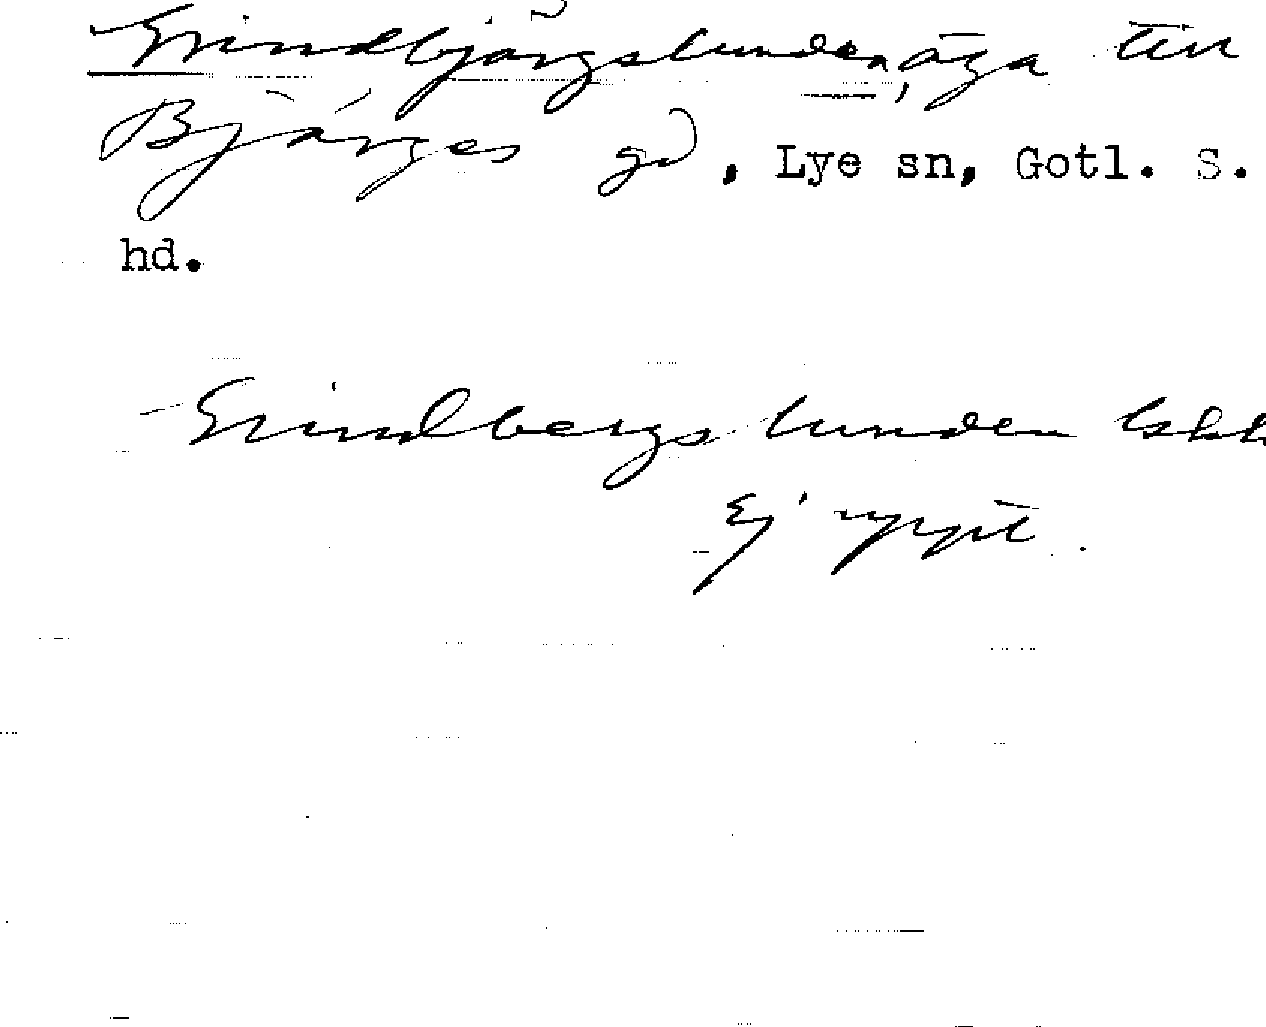 Grindbjärgslunden, äga till
Bjärges gd, Lye sn, Gotl. S.
hd.
Grindbergs lunden
Ej uppt.